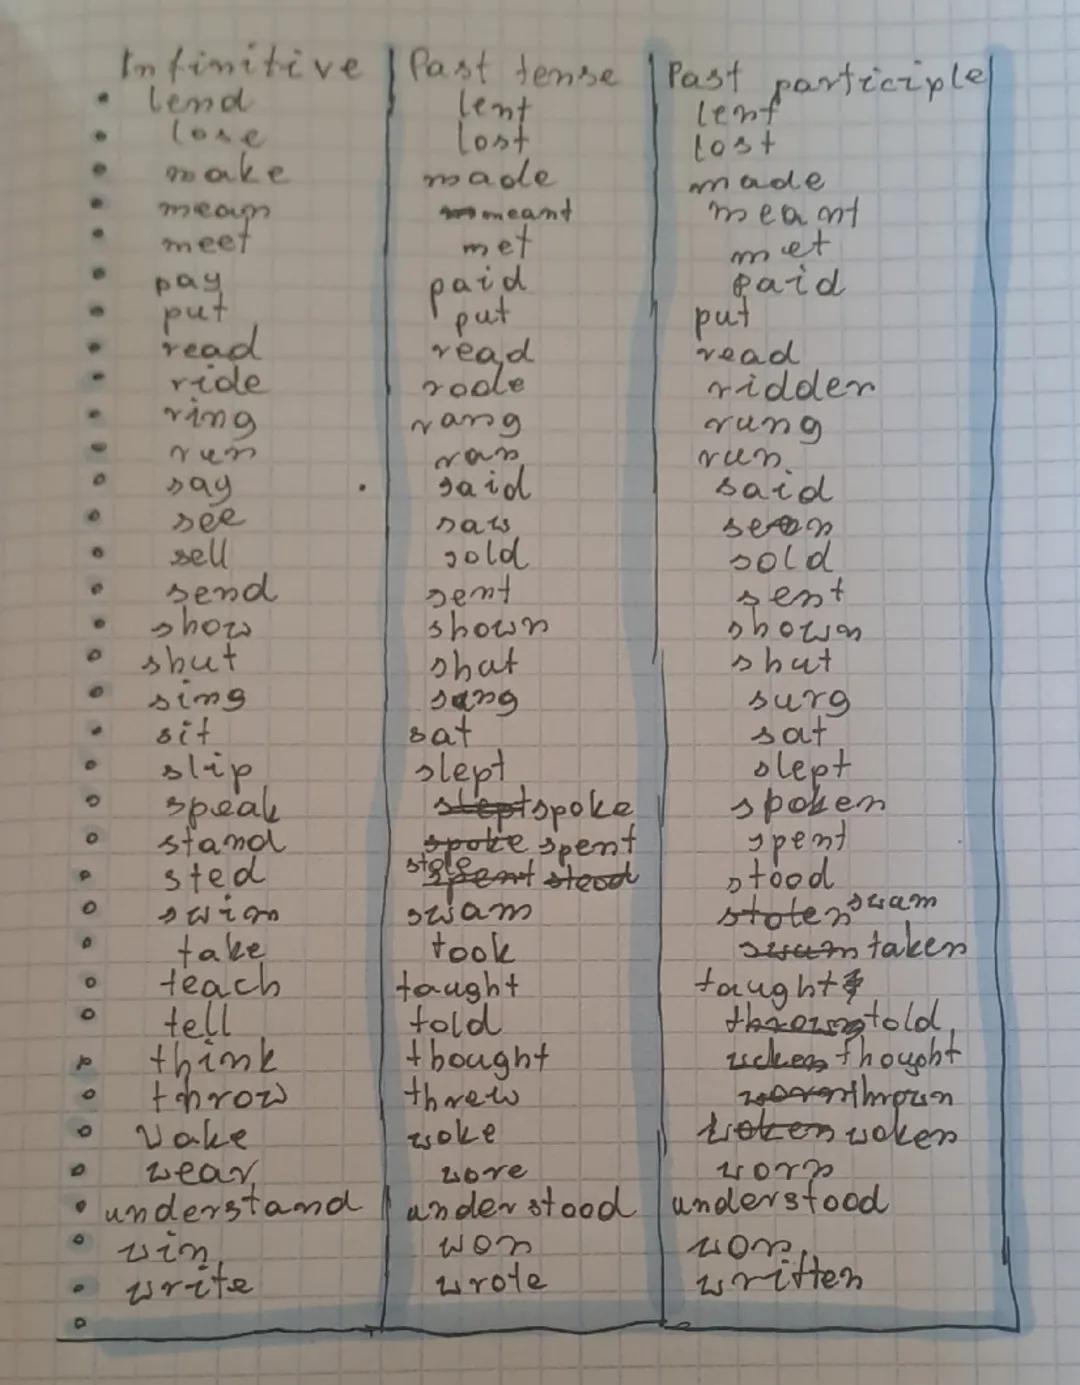 Infinitive Past tense Past participle
lend lent lent
lose lost lost
make made made
mean meant meant
meet met met
pay paid paid
put put put
read read read
ride rode ridden
ring rang rung
run ran run
say said said
see saw seen
sell sold sold
send sent sent
show shown shown
shut shut shut
sing sang surg
sit sat sat
slip slept slept
speak slept spoke spoken
stand spoke spent spent
sted stole spent stood stood
swim swam stolen swam
take took swum taken
teach taught taught
tell told thrown told
think thought woken thought
throw threw worn thrown
Vake woke woken woken
wear wore worn
understand understood understood
win won won
write wrote written